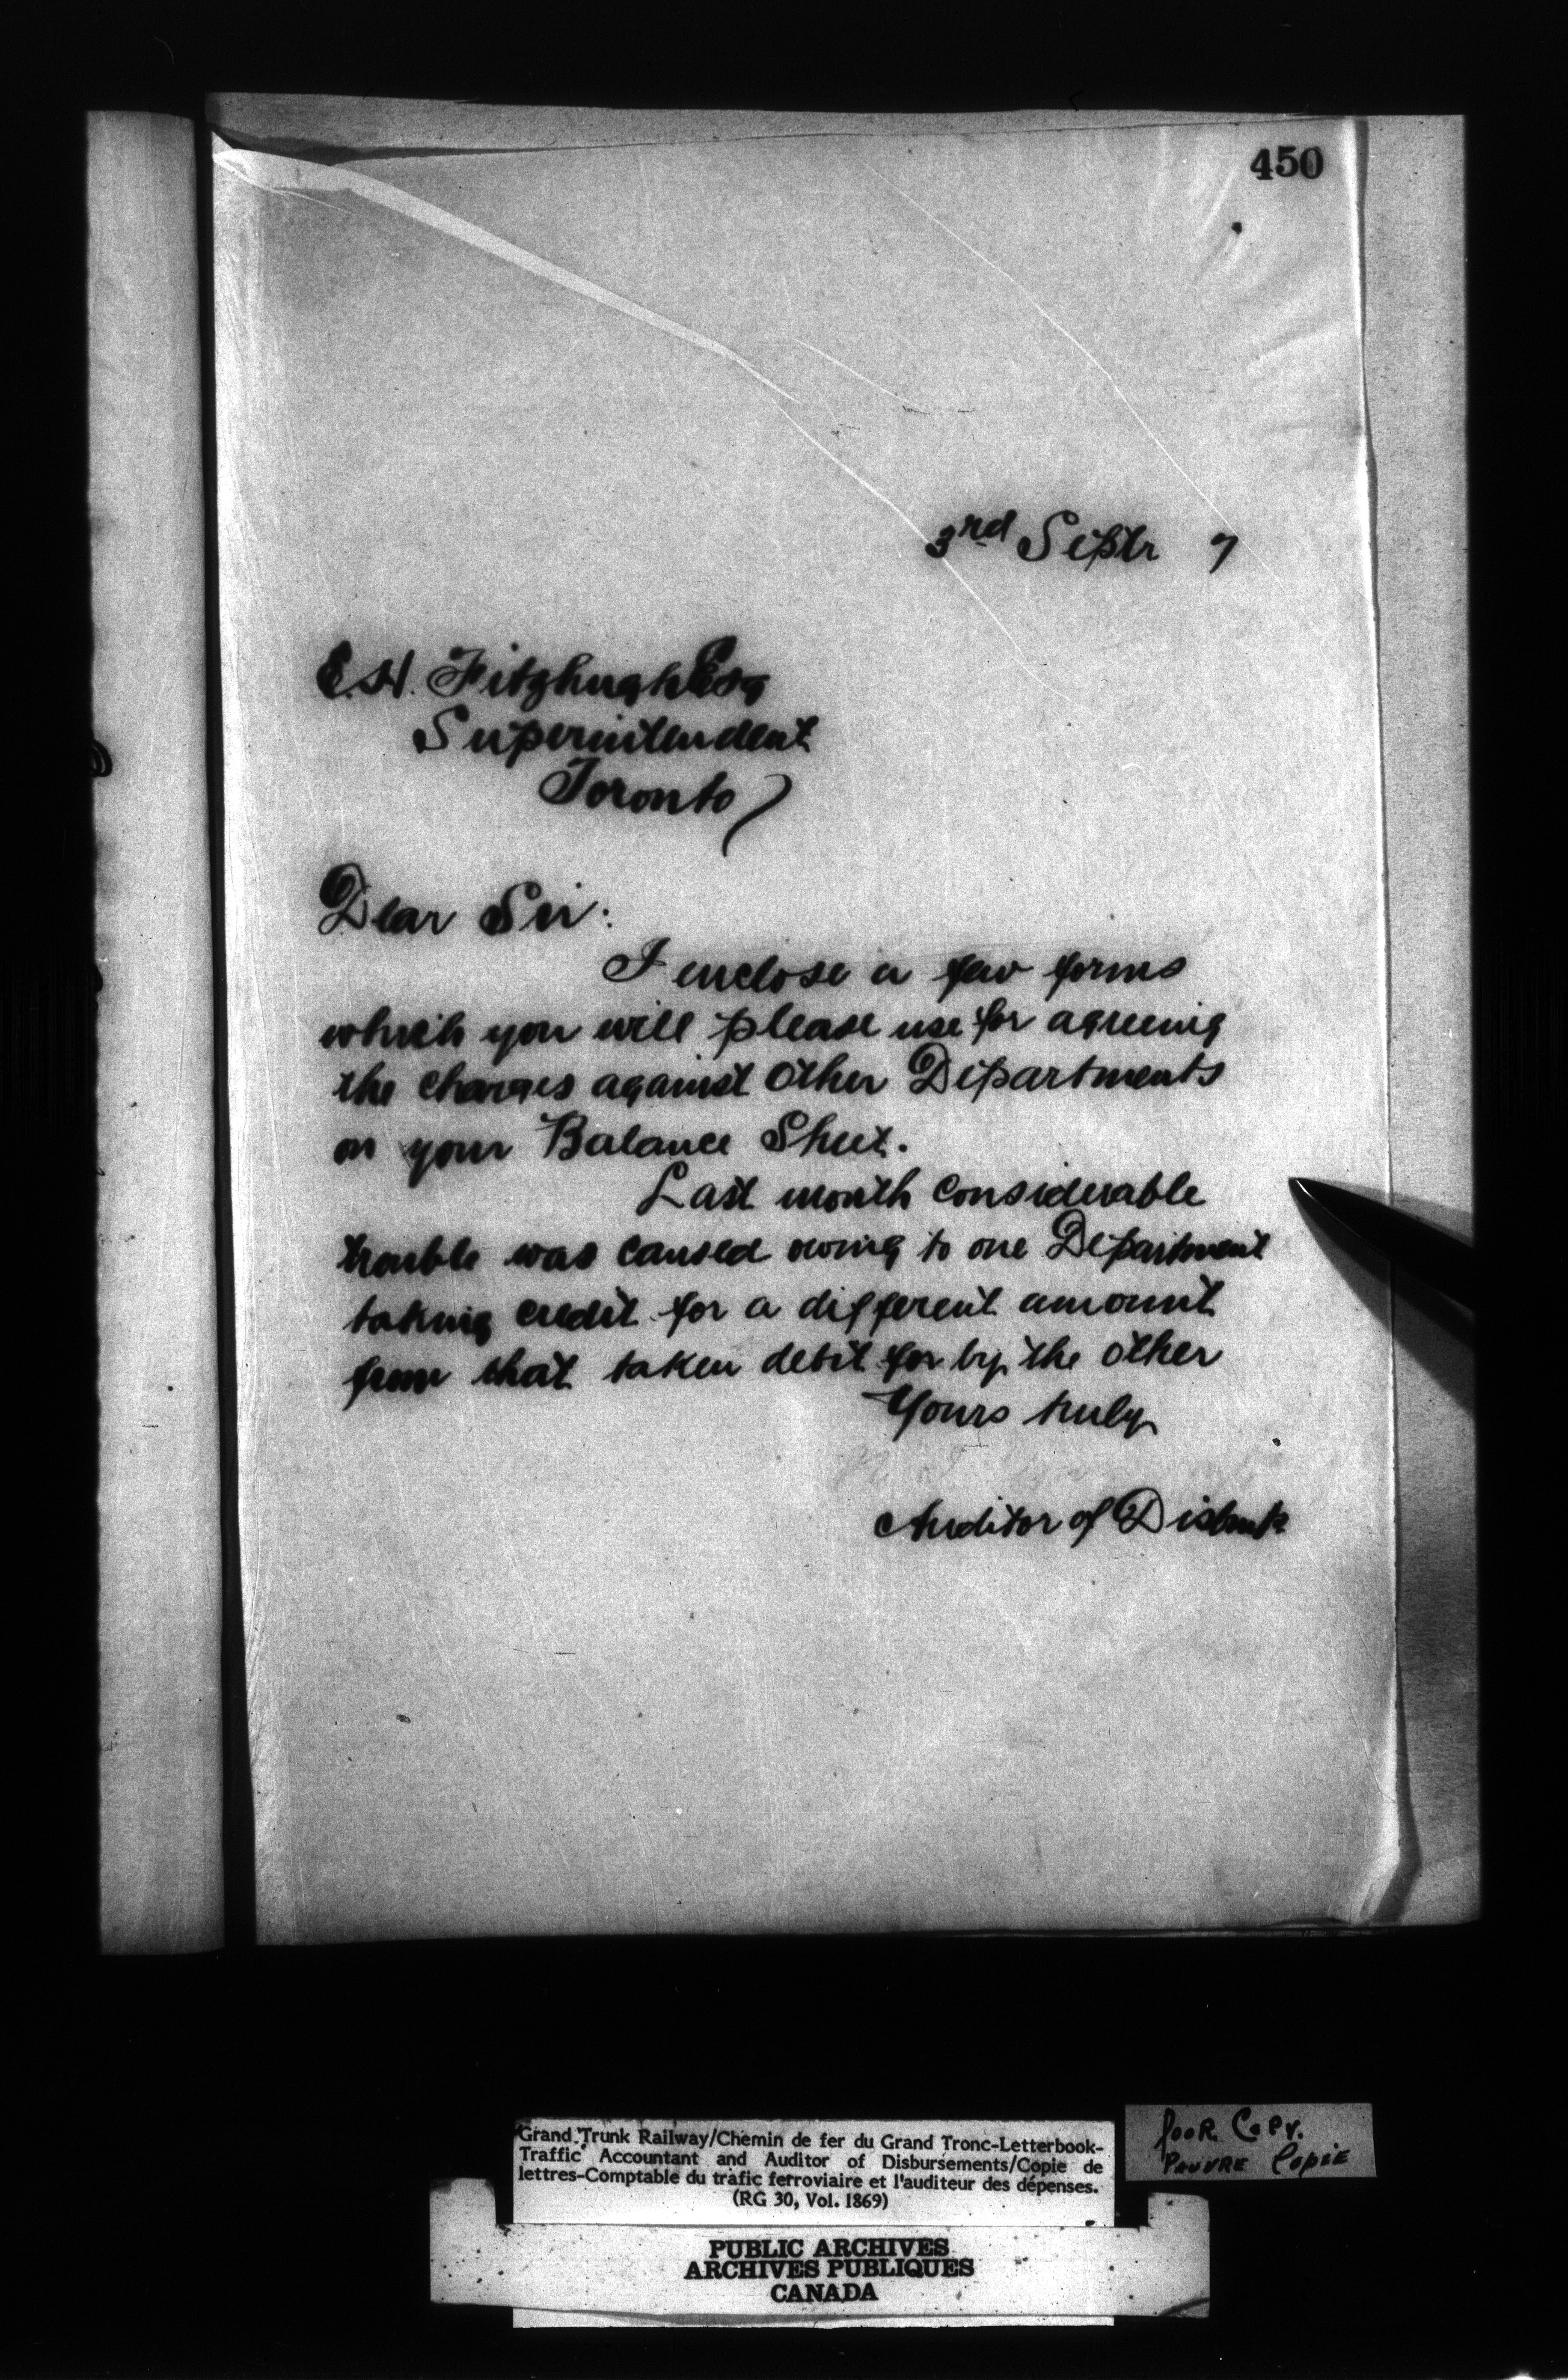 450
3rd Septr 7
E.H. Fitzhugh Esq
Superintendent
Toronto
Dear Sir:
I enclose a few forms
which you will please use for agreeing
the charges against other Departments
on your Balance Sheet.
Last month considerable
trouble was caused owing to one Department
taking credit for a different amount
from that taken debit for by the other
Yours truly
Auditor of Disbmts
Grand Trunk Railway/Chemin de fer du Grand Tronc-Letterbook-
Traffic Accountant and Auditor of Disbursements/Copie de
lettres-Comptable du trafic ferroviaire et l'auditeur des dépenses.
(RG 30, Vol. 1869)
POOR COPY.
PAUVRE COPIE
PUBLIC ARCHIVES
ARCHIVES PUBLIQUES
CANADA